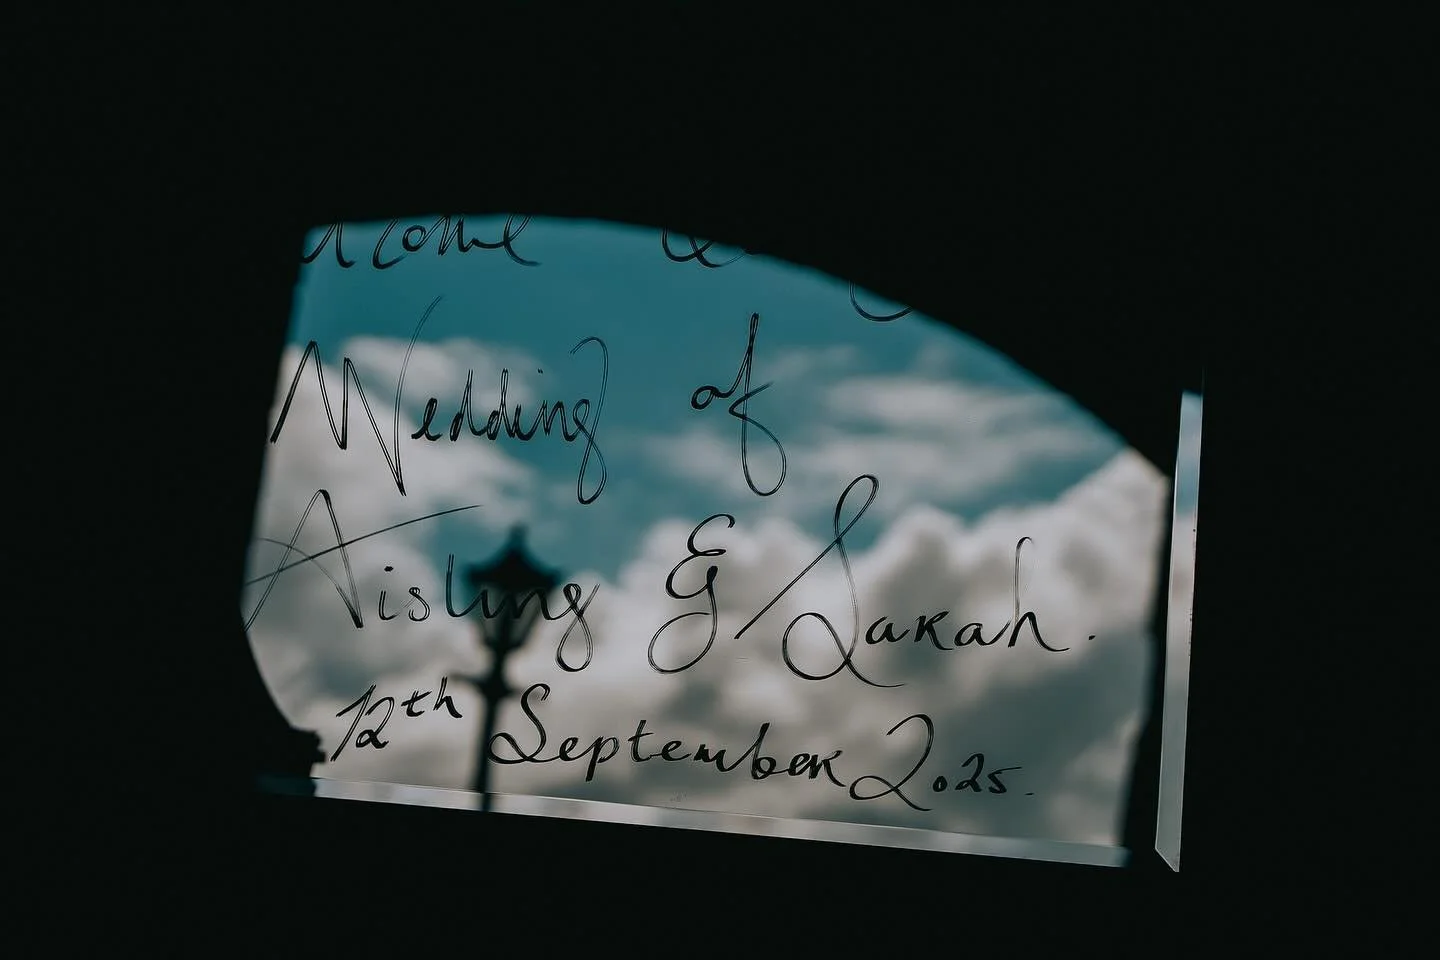 Wedding of
Aisling & Sarah.
12th September 2025.